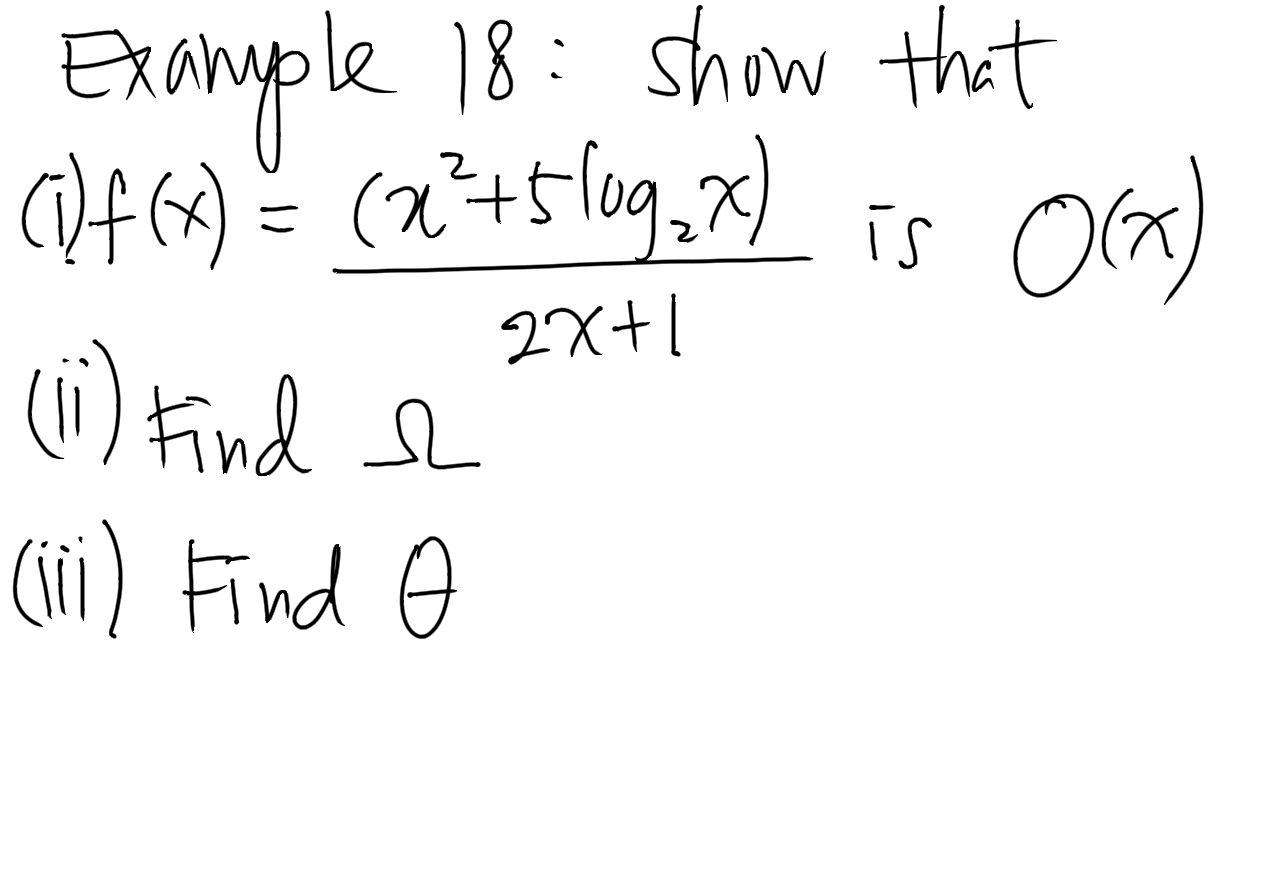 Example 18: show that
(i) f(x) = (x²+5log₂x) / 2x+1 is O(x)
(ii) Find Ω
(iii) Find θ